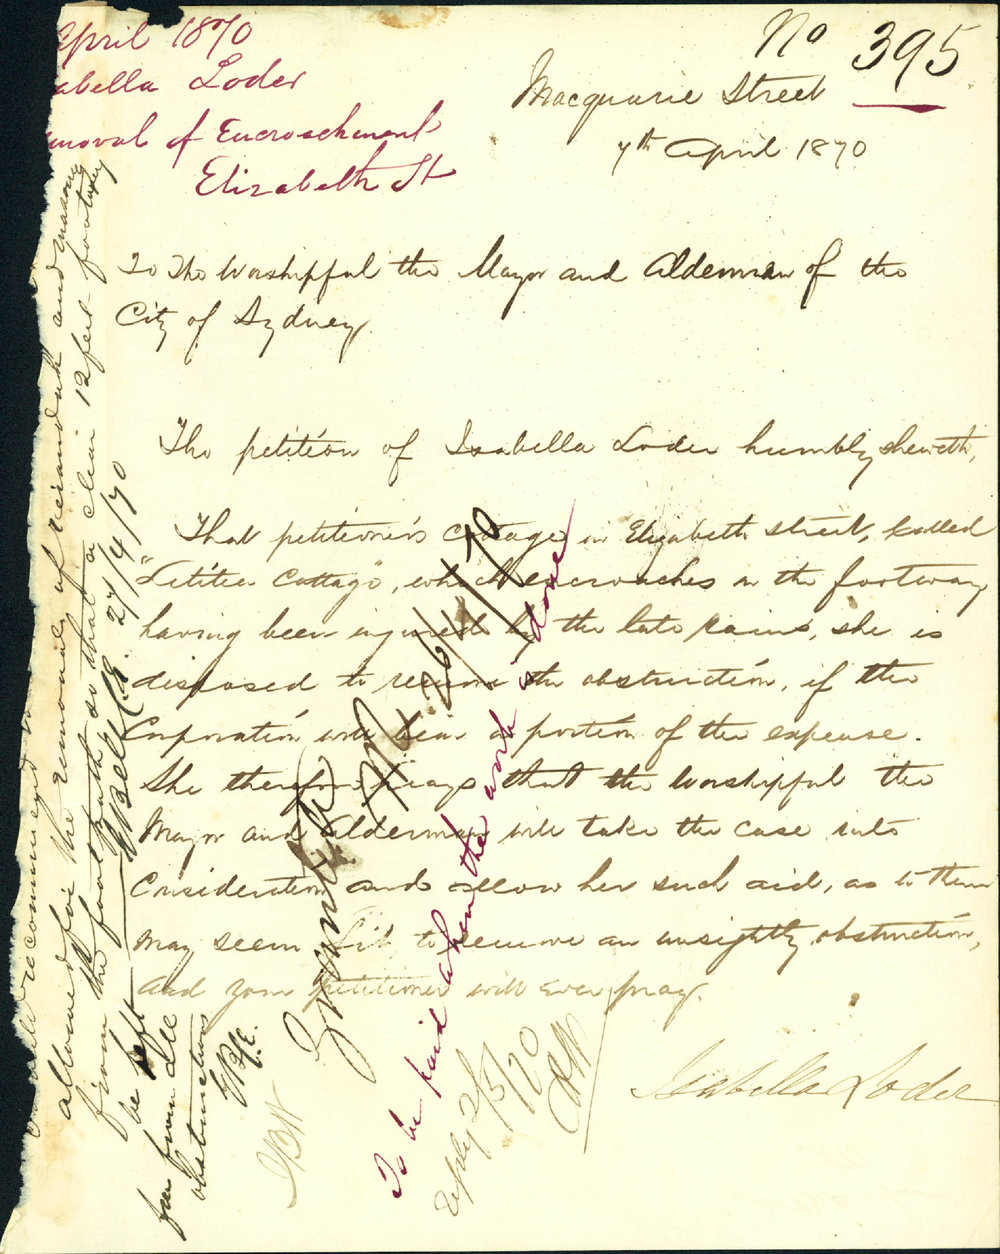 April 1870
abella Loder
moval of Encroachment
Elizabeth St
No 395
Macquarie Street
7th April 1870
To The Worshipful the Mayor and Aldermen of the
City of Sydney
The petition of Isabella Loder humbly sheweth,
That petitioner's cottage in Elizabeth Street, called
"Letitia Cottage", which encroaches on the footway
having been injured by the late rains, she is
disposed to remove the obstruction, if the
Corporation will bear a portion of the expense.
She therefore prays that the Worshipful the
Mayor and Aldermen will take the case into
Consideration and allow her such aid, as to them
may seem fit to remove an unsightly obstruction,
and your petitioner will ever pray.
Isabella Loder
recommend
allowed for the removal of verandah and
from the footpath so that a clear 12 feet footway
be left
free from all
obstructions
27/4/70
26/4/70
To be paid when the work is done
Reply 2/5/70